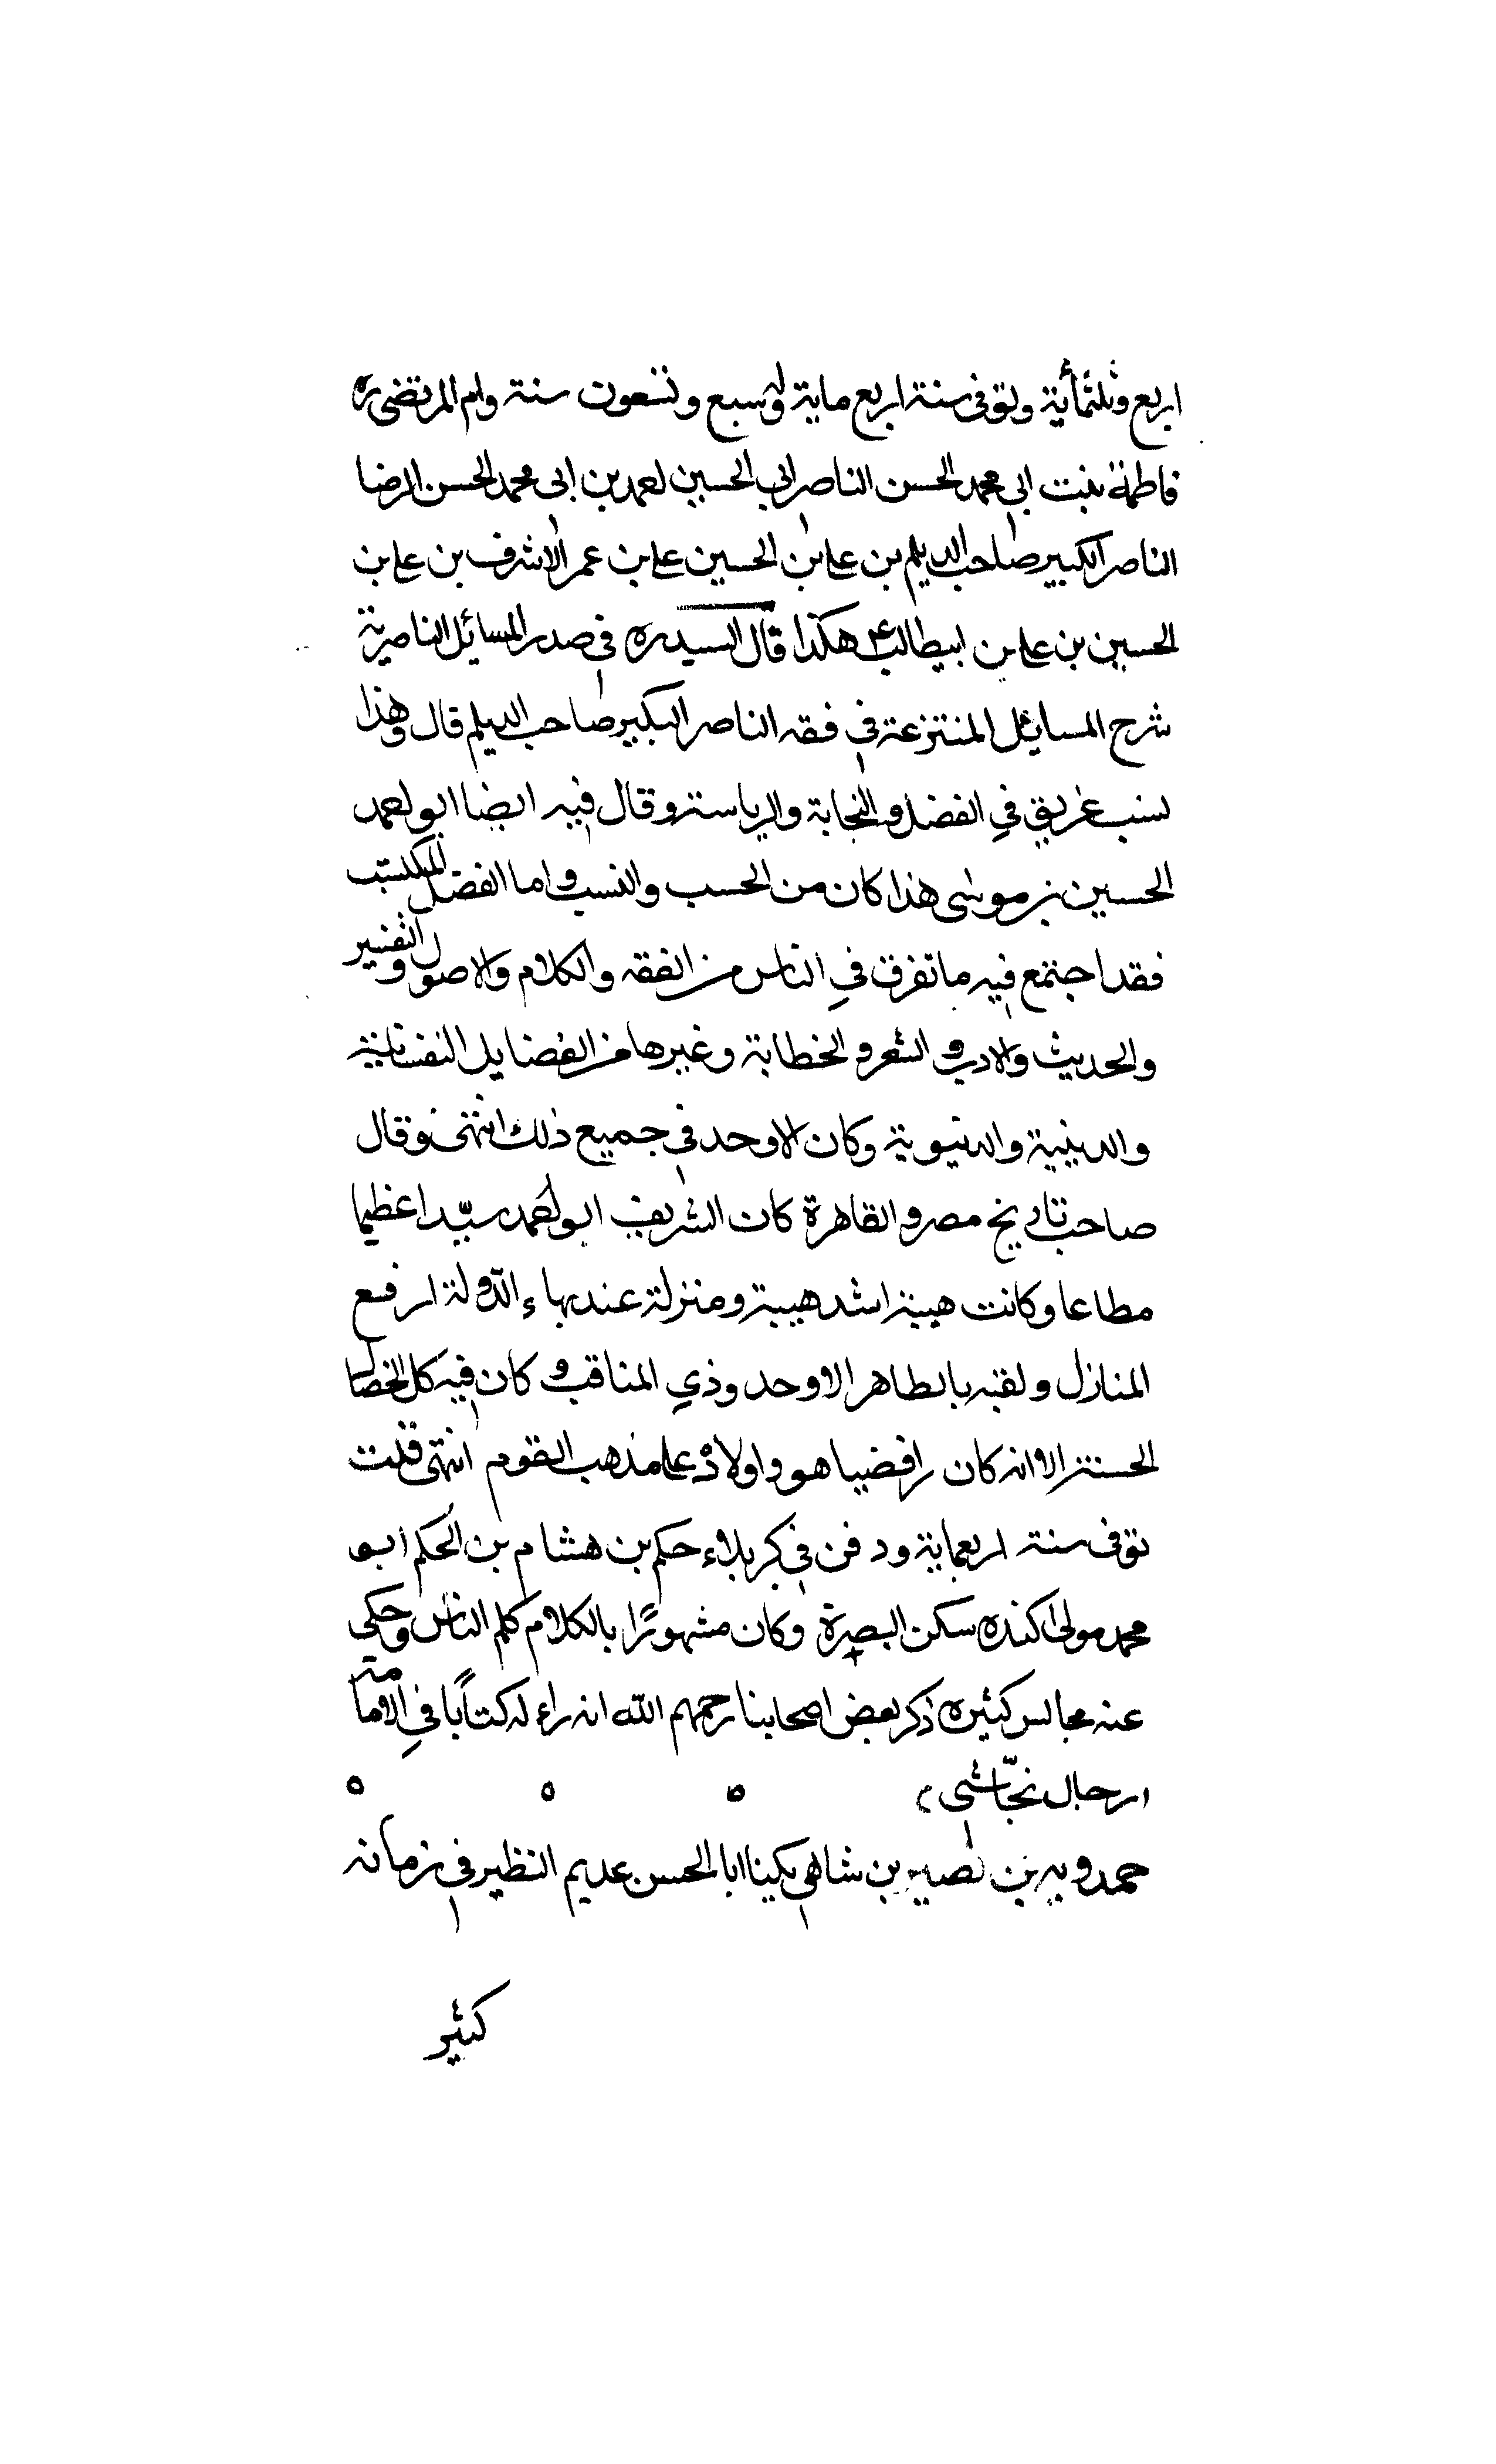 اربع وثلثمأية وتوفى سنة اربع ماية وله سبع وتسعون سنة وام المرتضى ره
فاطمة بنت ابى محمد الحسن الناصر ابى الحسين احمد بن ابى محمد الحسن الرضا
الناصر الكبير صاحب الديلم بن على بن الحسين على بن عمر الاشرف بن على بن
الحسين بن على بن ابيطالب ع هكذا قال السيد ره فى صدر المسائل الناصرية
شرح المسايل المنتزعة فى فقه الناصر الكبير صاحب الديلم قال وهذا
نسب عريق في الفضل والنجابة والرياسة وقال فيه ايضا ابو احمد
الحسين بن موسى هذا كان من الحسب والنسب واما الفضل المكتسب
فقد اجتمع فيه ما تفرق في الناس من الفقه والكلام والاصول والتفسير
والحديث والادب والشعر والخطابة وغيرها من الفضايل النفسانية
والدينية والدنيوية وكان الاوحد فى جميع ذلك انتهى وقال
صاحب تاريخ مصر والقاهرة كان الشريف ابو احمد سيّدا عظيما
مطاعا وكانت هيبة اشد هيبة ومنزلة عند بهاء الدّولة ارفع
المنازل ولقبه بالطاهر الاوحد وذي المناقب وكان فيه كل الخصال
الحسنة الا انه كان رافضيا هو واولاده على مذهب القوم انتهى قلت
توفى سنة اربعماية ودفن فى كربلاء حكم بن هشام بن الحكم ابو
محمد مولى كنده سكن البصرة وكان مشهورًا بالكلام كلم الناس وحكى
عنه مجالس كثيره ذكر بعض اصحابنا رحمهم الله انه راء له كتابًا في الامامة
(رجال نجّاشى)
حمدويه بن نصير بن شاهى يكنا ابا الحسن عديم النظير فى زمانه
كثير